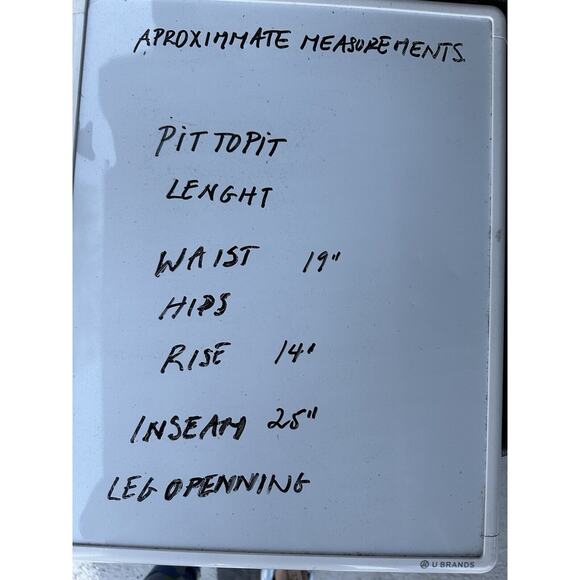 APROXIMMATE MEASUREMENTS
PIT TO PIT
LENGHT
WAIST 19"
HIPS
RISE 14'
INSEAM 25"
LEG OPENNING
U BRANDS